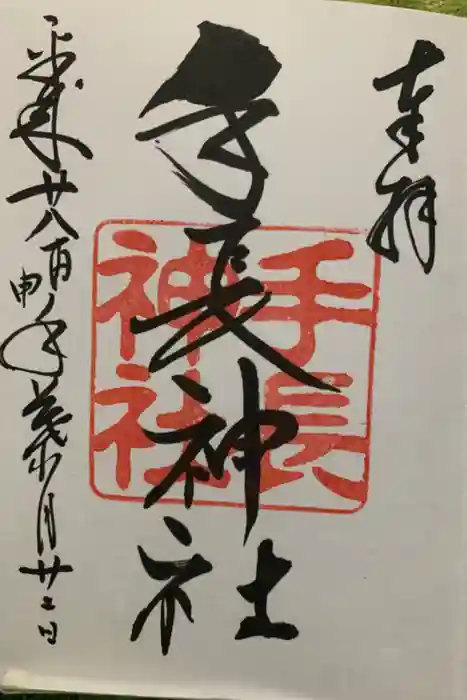 奉拝
手長神社
手長
神社
平成廿八丙申年葉月廿二日